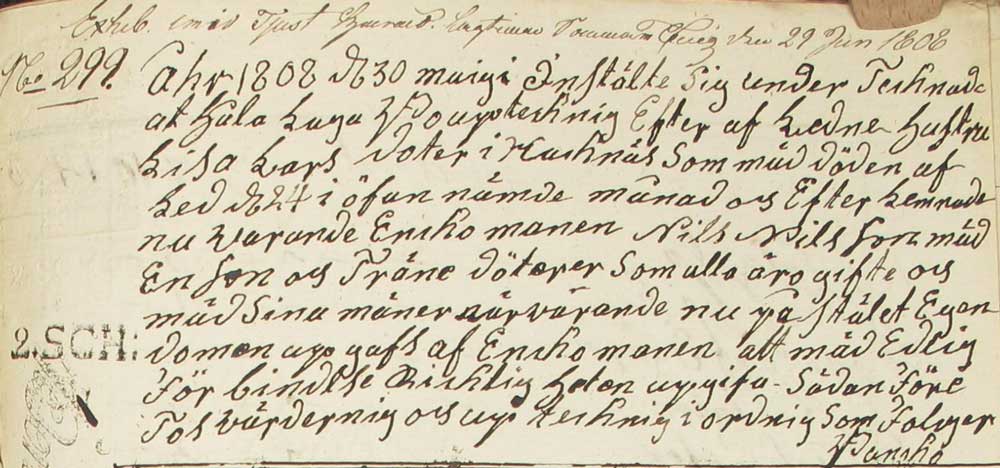 Exhib. Tjust Härads Lagtima Sommar Ting den 29 Jun 1808
No 299.
Åhr 1808 d 30 maigi Inställte Sig under Tecknade
at Hala Laga Bo uptecknig Efter af Ledne Hustru
Lisa Lars doter i Hacknäs Som mäd döden af
Led d 24 i öfan nämde månad och Efter Lemnade
nu Warande Encko manen Nils Nils Son mäd
En Son och Träne dötrer Som alla äro gifte och
mäd Sina mäner närvärande nu pa Stälet Egen
domen up gafs af Encko manen alt mäd Edlig
För bindelse Ricktig heten upgifa. Sådan Före
Tos värdernig och up Tecknig i ordnig Som Fölger
2. SCH: